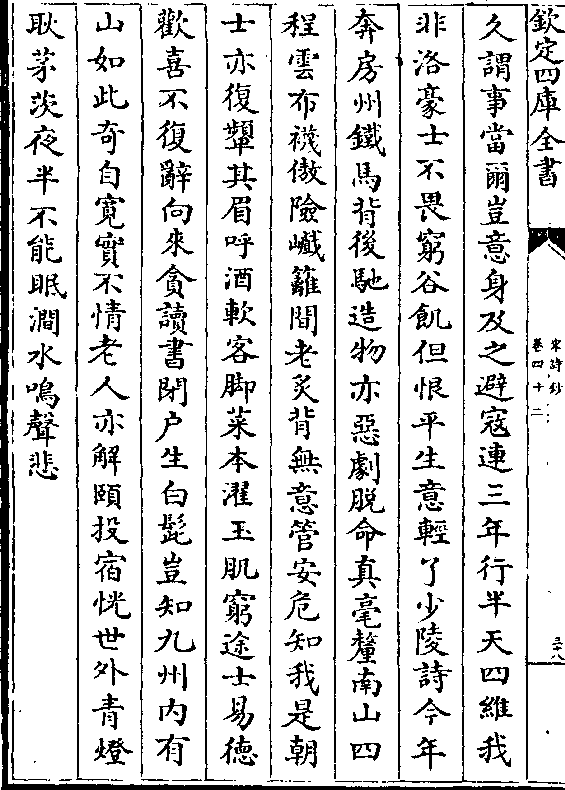 欽定四庫全書
宋詩鈔
卷四十二
三十八
久謂事當爾豈意身及之避寇連三年行半天四維我
非洛豪士不畏窮谷飢但恨平生意輕了少陵詩今年
奔房州鐵馬背後馳造物亦惡劇脱命真毫釐南山四
程雲布襪傲險巇籬間老炙背無意管安危知我是朝
士亦復顰其眉呼酒軟客脚菜本濯玉肌窮途士易德
歡喜不復辭向來貪讀書閉户生白髭豈知九州内有
山如此奇自寛實不情老人亦解頤投宿恍世外青燈
耿茅茨夜半不能眠澗水鳴聲悲